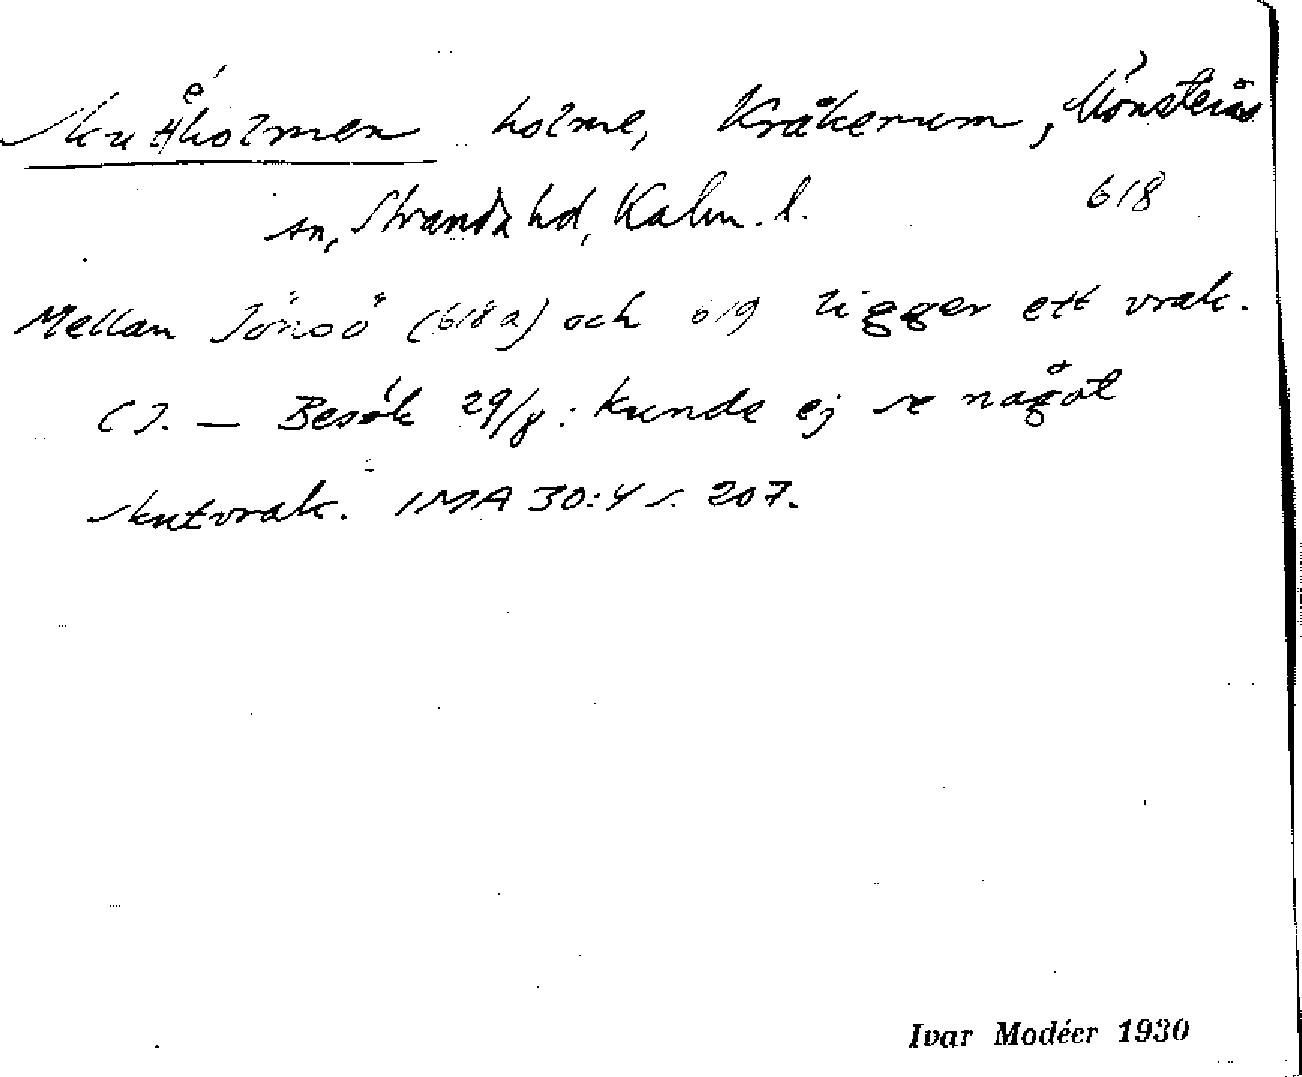 Skuteholmen holme, Kråkerum, Mönsterås
sn, Stranda hd, Kalm. l. 618
Mellan Jönsö (618 a) och 619 ligger ett vrak.
CJ. — Besök 29/8: kunde ej se något
skutvrak. IMA 30:4 s. 207.
Ivar Modéer 1930